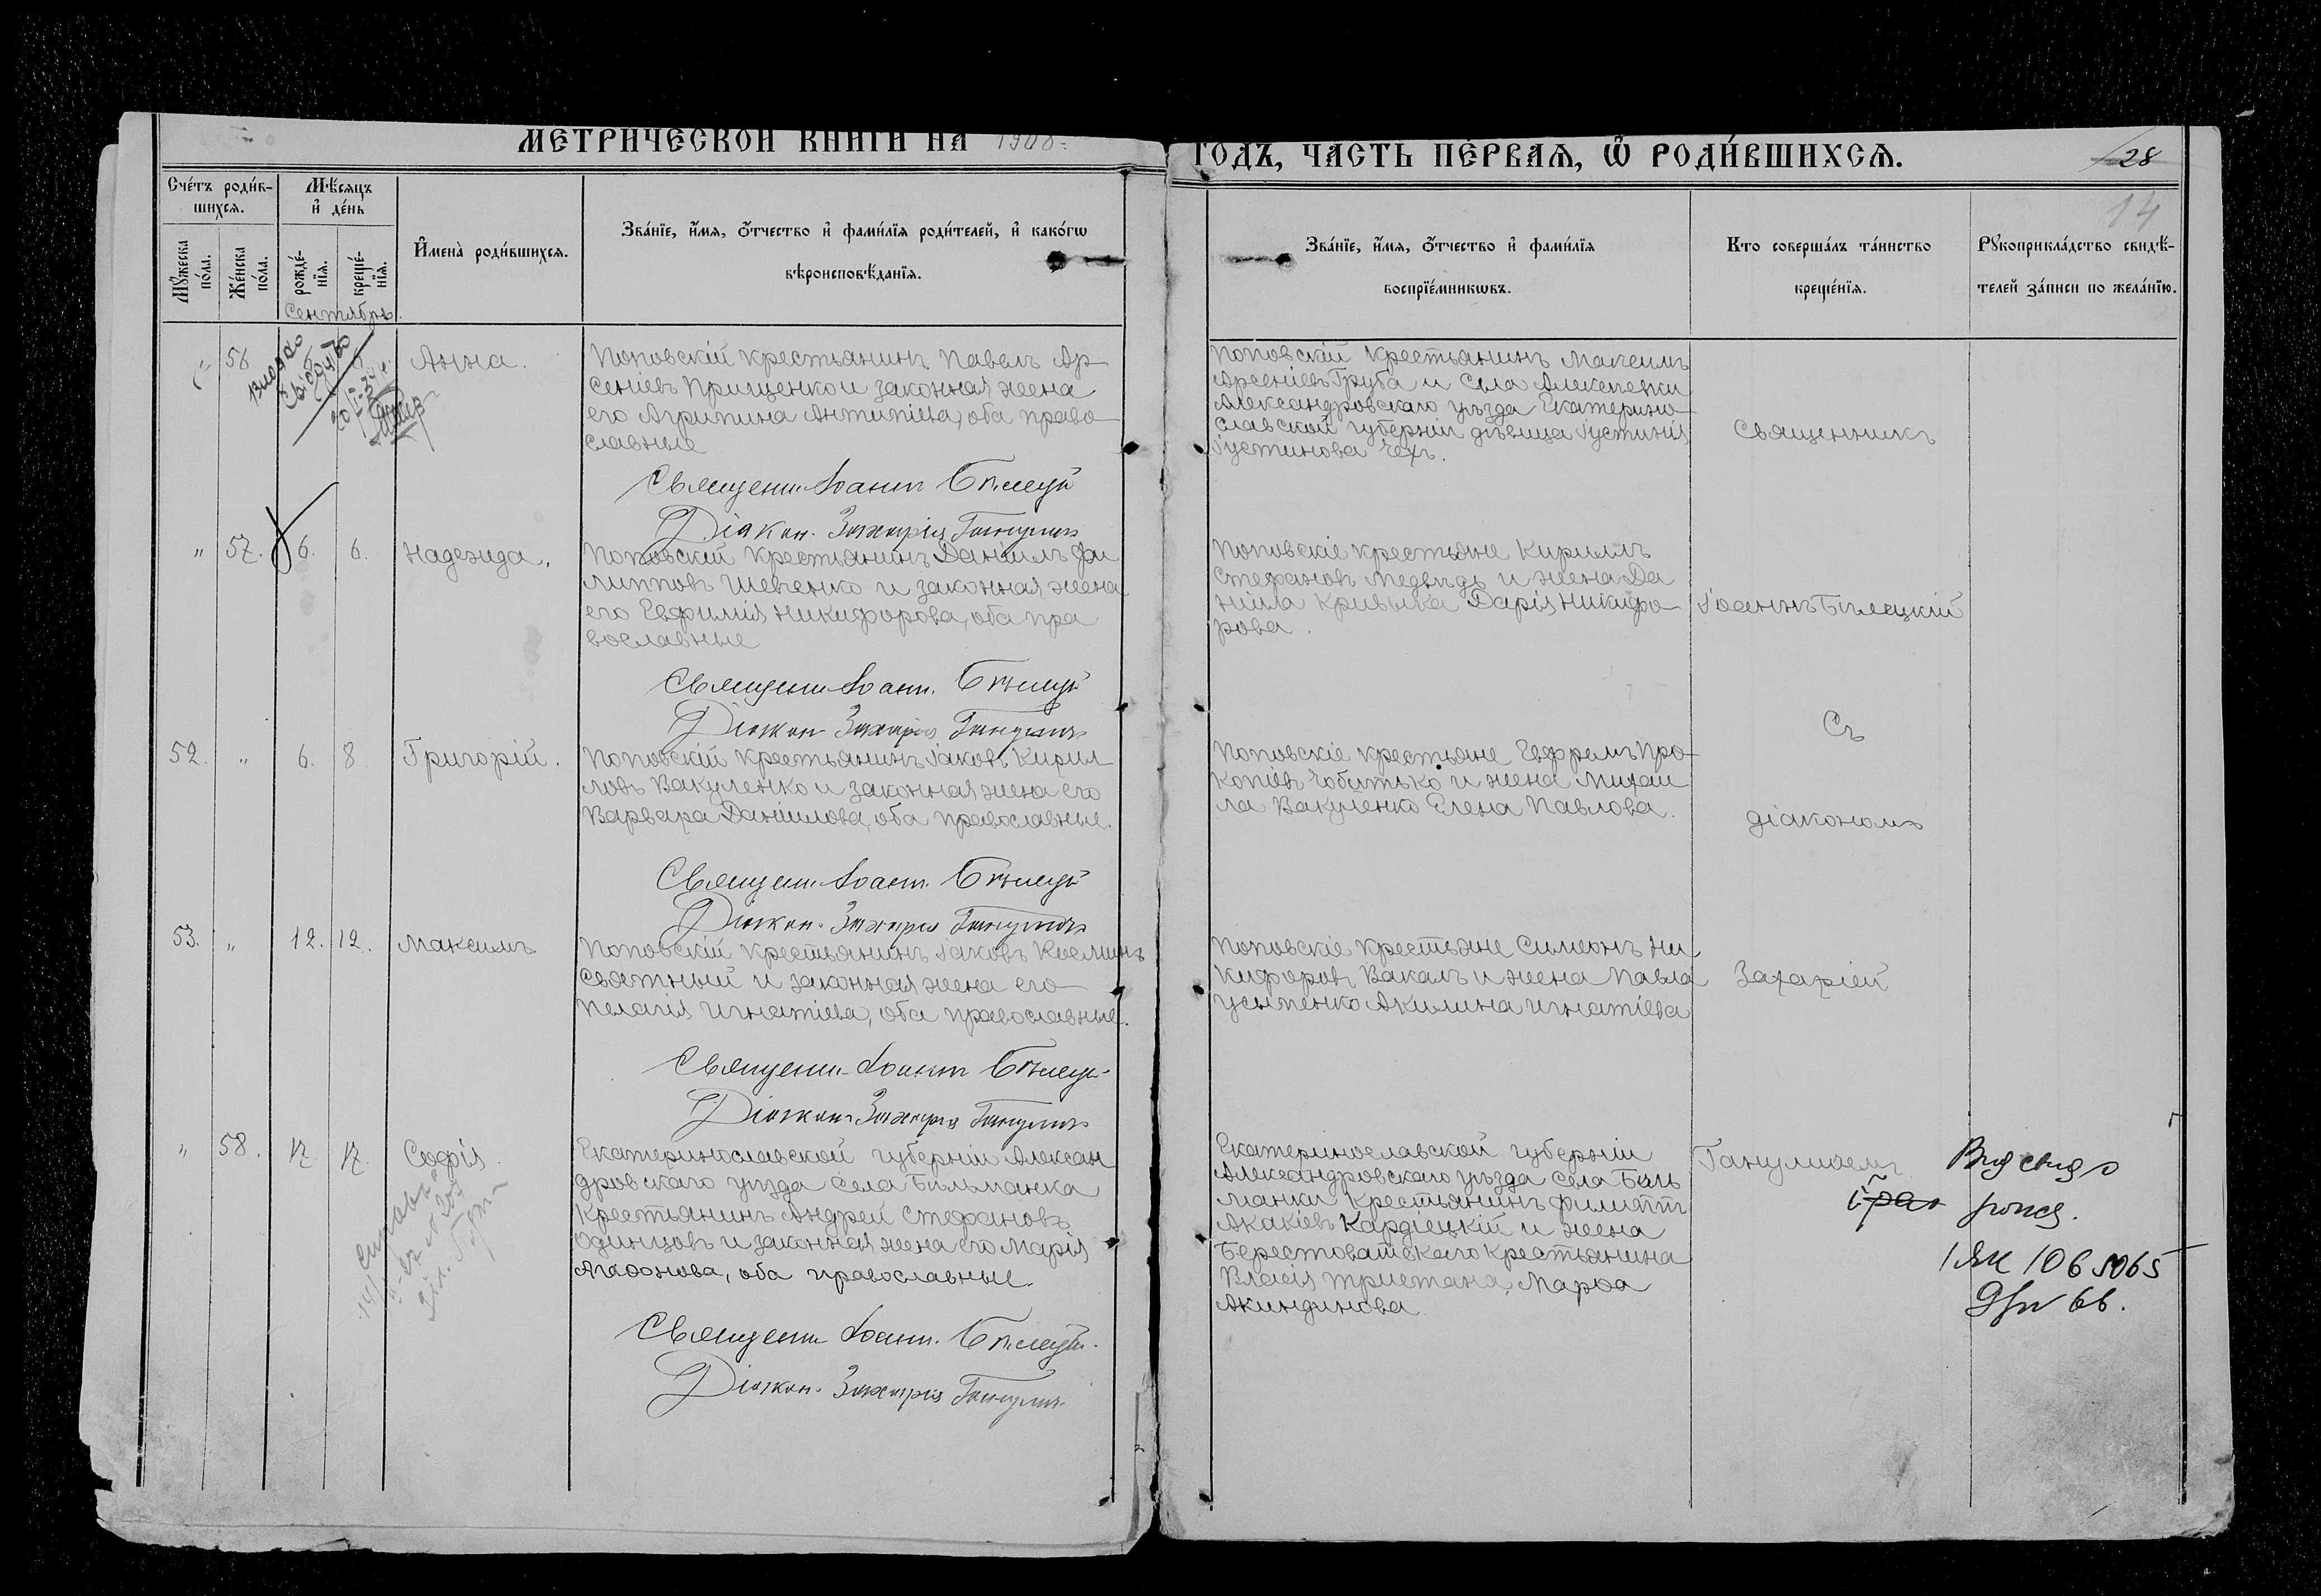 МЕТРИЧЕСКОЙ КНИГИ НА 1908
ГОДЪ, ЧАСТЬ ПЕРВАЯ, Ѡ РОДИ́ВШИХСЯ.
28
14
Сче́тъ роди́в-
шихся.
Мѣ́сяцъ
и҆ де́нь
Мꙋ́жеска
по́ла.
Же́нска
по́ла.
рожде́-
нїя.
креще́-
нїя.
И҆мена̀ роди́вшихся.
Зва́нїе, и҆́мя, ѻ҆́тчество и҆ фами́лїя роди́телей, и҆ како́гѡ
вѣроисповѣ́данїя.
Зва́нїе, и҆́мя, ѻ҆́тчество и҆ фами́лїя
воспрїе́мникѡвъ.
Кто соверша́лъ та́инство
креще́нїя.
Рꙋкоприкла́дство свидѣ́-
телей за́писи по жела́нїю.
Сентябрь
" 56 Анна.
Поповскій крестьянинъ Павелъ Ар-
сеніевъ Прищенко и законная жена
его Агрипина Антипіева, оба право-
славные
Священн. Іоаннъ Бѣлецкій
Діакон. Захарія Ганулич
Поповскій крестьянинъ Максимъ
Арсеніевъ Груба и села Алексеевки
Александровскаго уѣзда Екатерино-
славской губерніи дѣвица Іустинія
Іустинова Чехъ.
Священникъ
" 57. 6. 6. Надежда.
Поповскій крестьянинъ Даніилъ Фи
липповъ Шевченко и законная жена
его Евфимія Никифорова, оба пра
вославные
Священн. Іоанн. Бѣлецкій
Діакон Захарія Ганулич
Поповскіе крестьяне Кириллъ
Стефановъ Медвѣдь и жена Да
ніила Кривыка Дарія Никифо-
рова.
Іоаннъ Бѣлецкій
Съ
52. " 6. 8. Григорій.
Поповскій крестьянинъ Іаковъ Кирил
ловъ Вакуленко и законная жена его
Варвара Даніилова, оба православные.
Священн. Іоанн. Бѣлецкій
Діакон. Захарія Ганулич
Поповскіе крестьяне Ефремъ Про-
копіевъ Чобитько и жена Михаи
ла Вакуленко Елена Павлова.
діакономъ
53. " 12. 12. Максимъ.
Поповскій крестьянинъ Іаковъ Косминъ
Святный и законная жена его
Пелагія Игнатіева, оба православные.
Священн. Іоанн Бѣлецкій
Діакон Захарія Ганулич
Поповскіе крестьяне Симеонъ Ни
кифоровъ Вакалъ и жена Павла
Усыпенко Акилина Игнатіева
Захаріей
" 58. 12. 12. Софія
Екатеринославской губерніи Алексан
дровскаго уѣзда села Бѣльманка
крестьянинъ Андрей Стефановъ
Одинцовъ и законная жена его Марія
Агаѳонова, оба православные.
Священн Іоанн. Бѣлецкій
Діакон. Захарія Ганулич
Екатеринославской губерніи
Александровскаго уѣзда села Бѣль
манки крестьянинъ Филиппъ
Акакіевъ Кардіецкій и жена
Берестоватскаго крестьянина
Власія Тристана, Марѳа
Акиндинова.
Гануличемъ
1065065